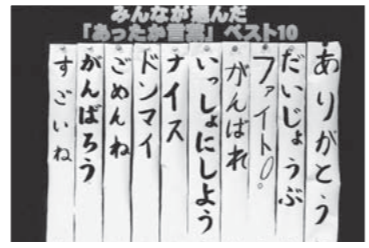 みんなが選んだ
「あったか言葉」ベスト10
ありがとう
だいじょうぶ
ファイト!。
がんばれ
いっしょにしよう
ナイス
ドンマイ
ごめんね
がんばろう
すごいね